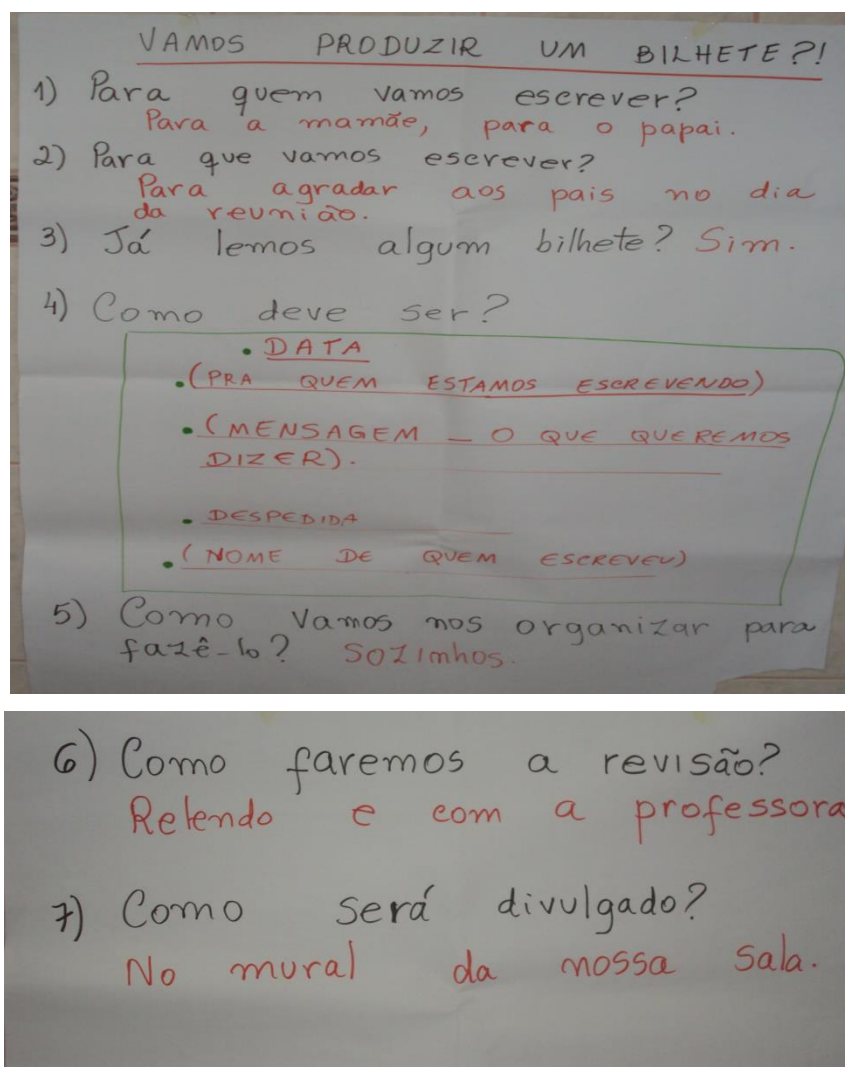 VAMOS PRODUZIR UM BILHETE?!
1) Para quem vamos escrever?
Para a mamãe, para o papai.
2) Para que vamos escrever?
Para agradar aos pais no dia
da reunião.
3) Já lemos algum bilhete? Sim.
4) Como deve ser?
• DATA
• (PRA QUEM ESTAMOS ESCREVENDO)
• (MENSAGEM – O QUE QUEREMOS
DIZER).
• DESPEDIDA
• (NOME DE QUEM ESCREVEU)
5) Como vamos nos organizar para
fazê-lo? Sozinhos.
6) Como faremos a revisão?
Relendo e com a professora
7) Como será divulgado?
No mural da nossa sala.